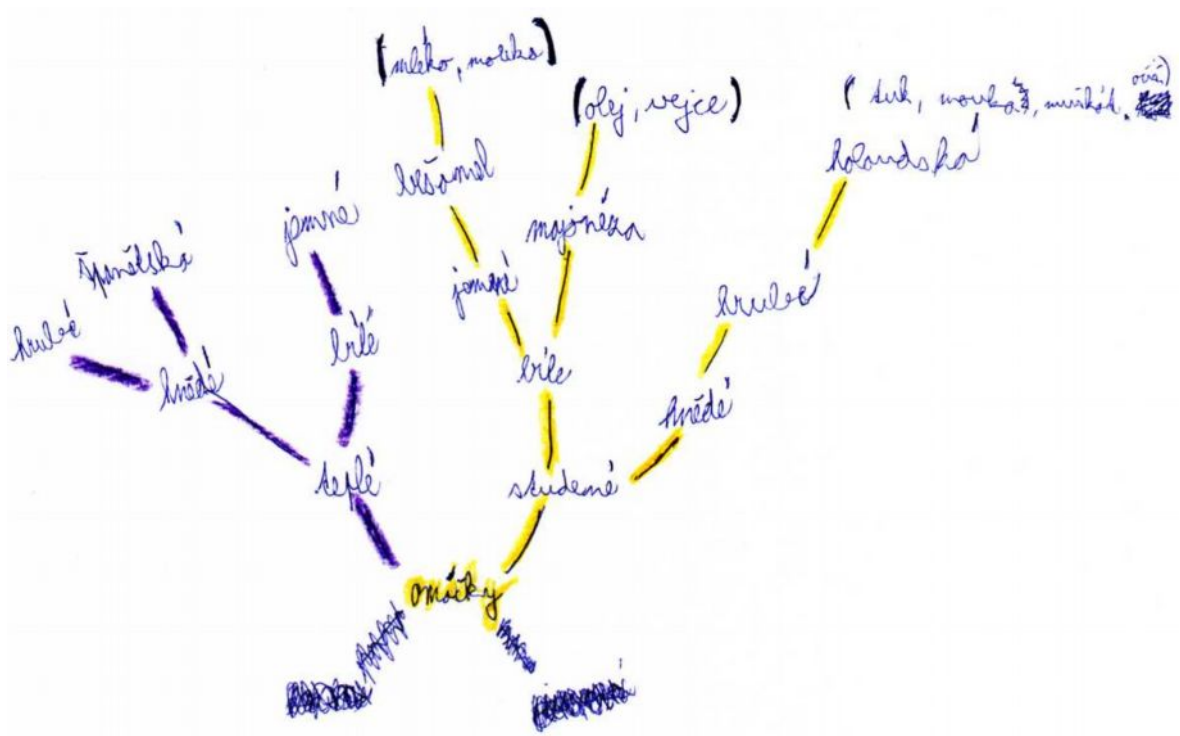 (mléko, mouka)
(olej, vejce)
(tuk, mouka, muškát,
holandská
bešamel
jemné
majonéza
španělská
jemné
hrubé
hrubé
bílé
hnědé
bíle
hnědé
teplé
studené
omáčky